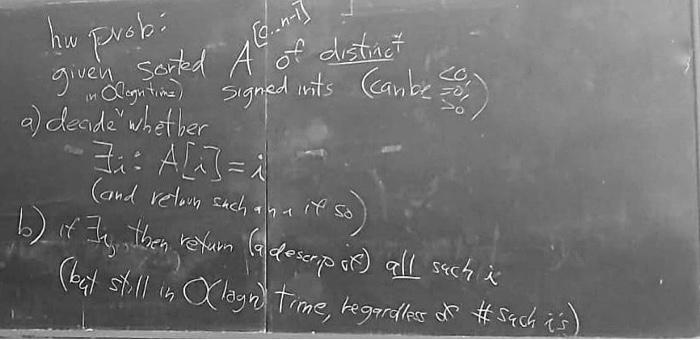 hw prob:
[0..n-1]
given sorted A of distinct
in O(logn time) signed ints (can be <0, =0, >0)
a) decide whether
∃i: A[i]=i
(and return such an i if so)
b) if ∃i, then return (a descrip of) all such i
(but still in O(logn) time, regardless of # such i's)